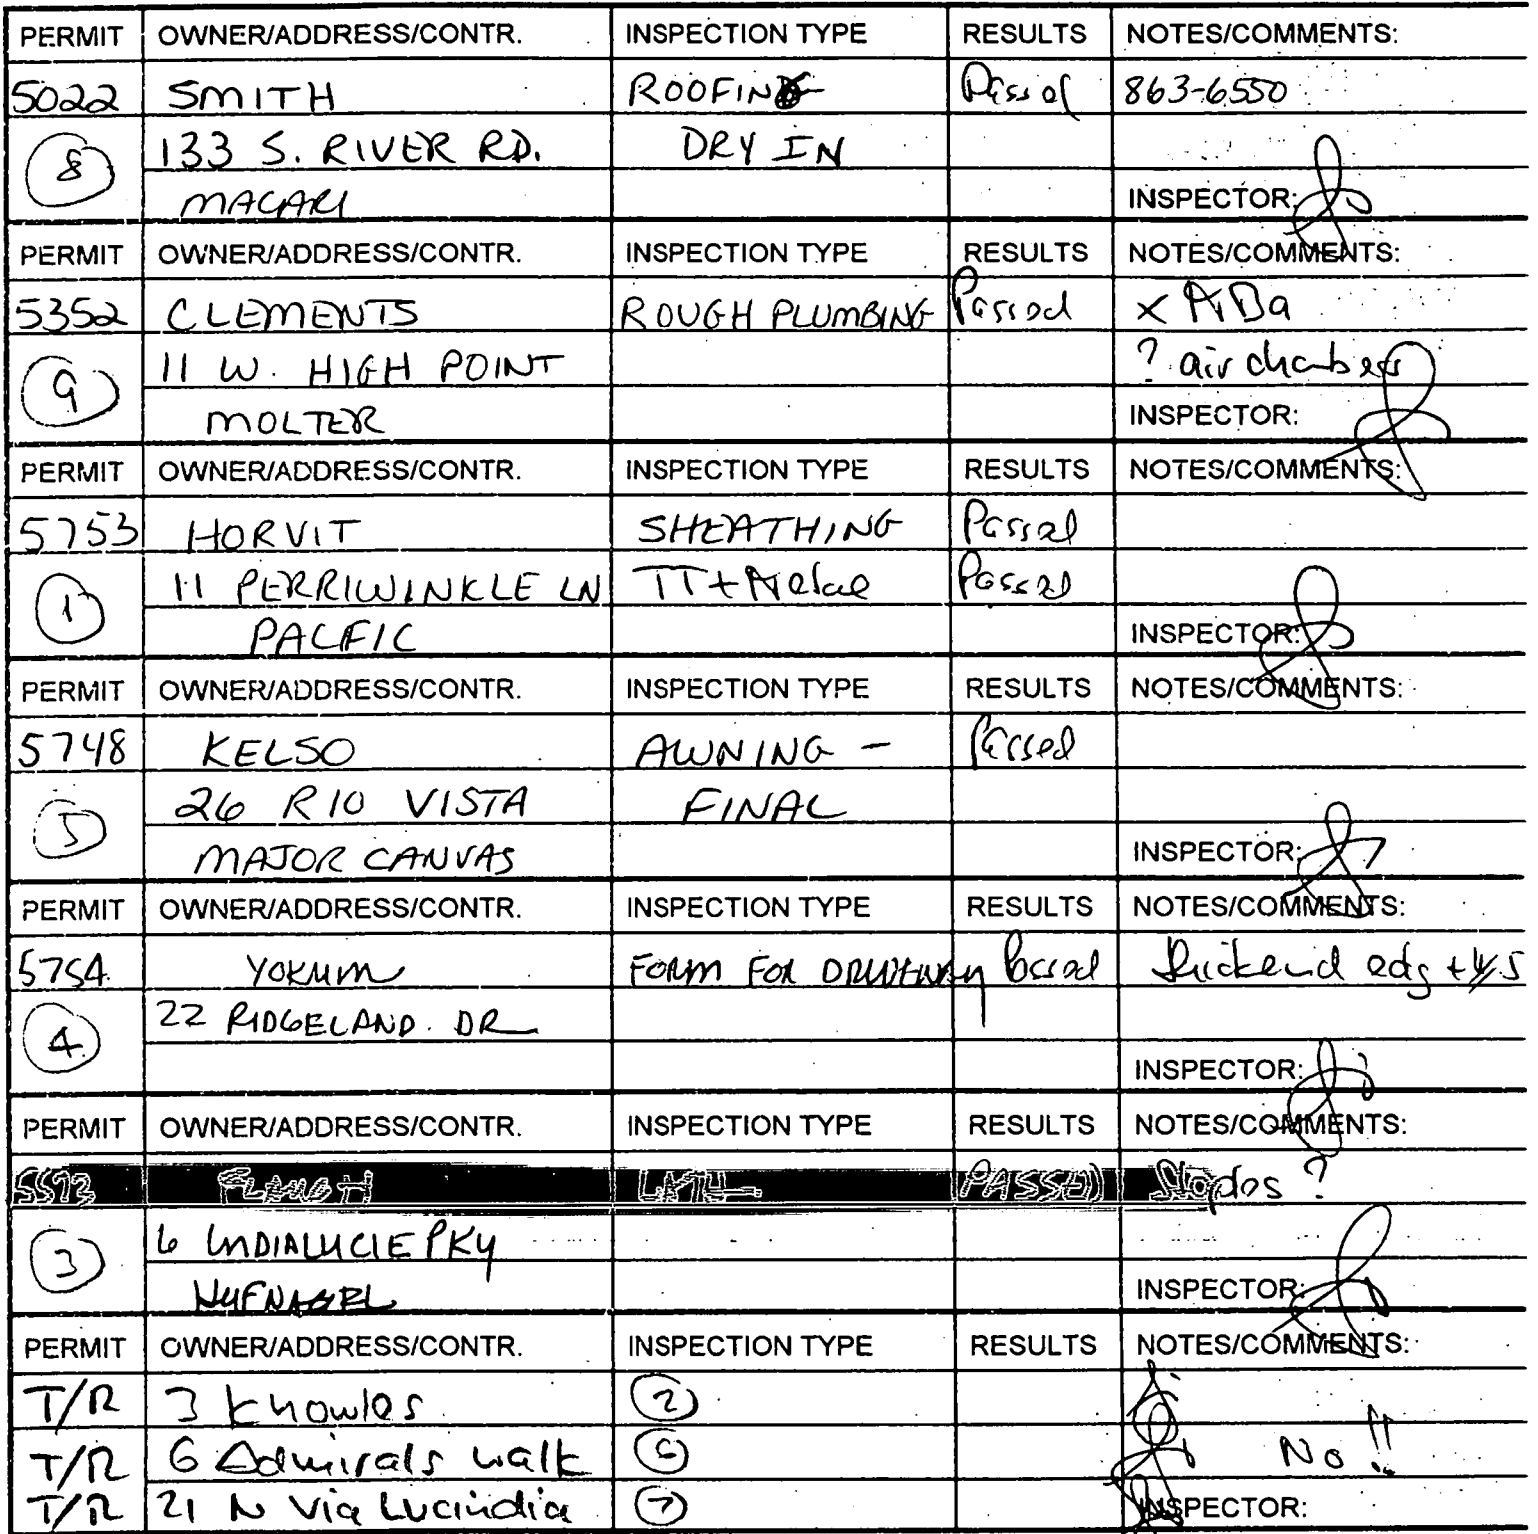 PERMIT OWNER/ADDRESS/CONTR. INSPECTION TYPE RESULTS NOTES/COMMENTS:
5022 SMITH ROOFING Passed 863-6550
8 133 S. RIVER RD. DRY IN
MACARI INSPECTOR:
PERMIT OWNER/ADDRESS/CONTR. INSPECTION TYPE RESULTS NOTES/COMMENTS:
5352 CLEMENTS ROUGH PLUMBING Passed x
9 11 W. HIGH POINT ? air chambers
MOLTER INSPECTOR:
PERMIT OWNER/ADDRESS/CONTR. INSPECTION TYPE RESULTS NOTES/COMMENTS:
5753 HORVIT SHEATHING Passed
1 11 PERRIWINKLE LN TT+ Passed
PACFIC INSPECTOR:
PERMIT OWNER/ADDRESS/CONTR. INSPECTION TYPE RESULTS NOTES/COMMENTS:
5748 KELSO AWNING - Passed
5 26 RIO VISTA FINAL
MAJOR CANVAS INSPECTOR:
PERMIT OWNER/ADDRESS/CONTR. INSPECTION TYPE RESULTS NOTES/COMMENTS:
5754 YOKUM FORM FOR DRIVEWAY Passed
4 22 RIDGELAND DR
INSPECTOR:
PERMIT OWNER/ADDRESS/CONTR. INSPECTION TYPE RESULTS NOTES/COMMENTS:
5573 PASSED ?
3 6 INDIALUCIE PKY
HUFNAGEL INSPECTOR:
PERMIT OWNER/ADDRESS/CONTR. INSPECTION TYPE RESULTS NOTES/COMMENTS:
T/R 3 Knowles 2
T/R 6 Admirals walk 6 No!!
T/R 21 N Via Lucindia 7 INSPECTOR: